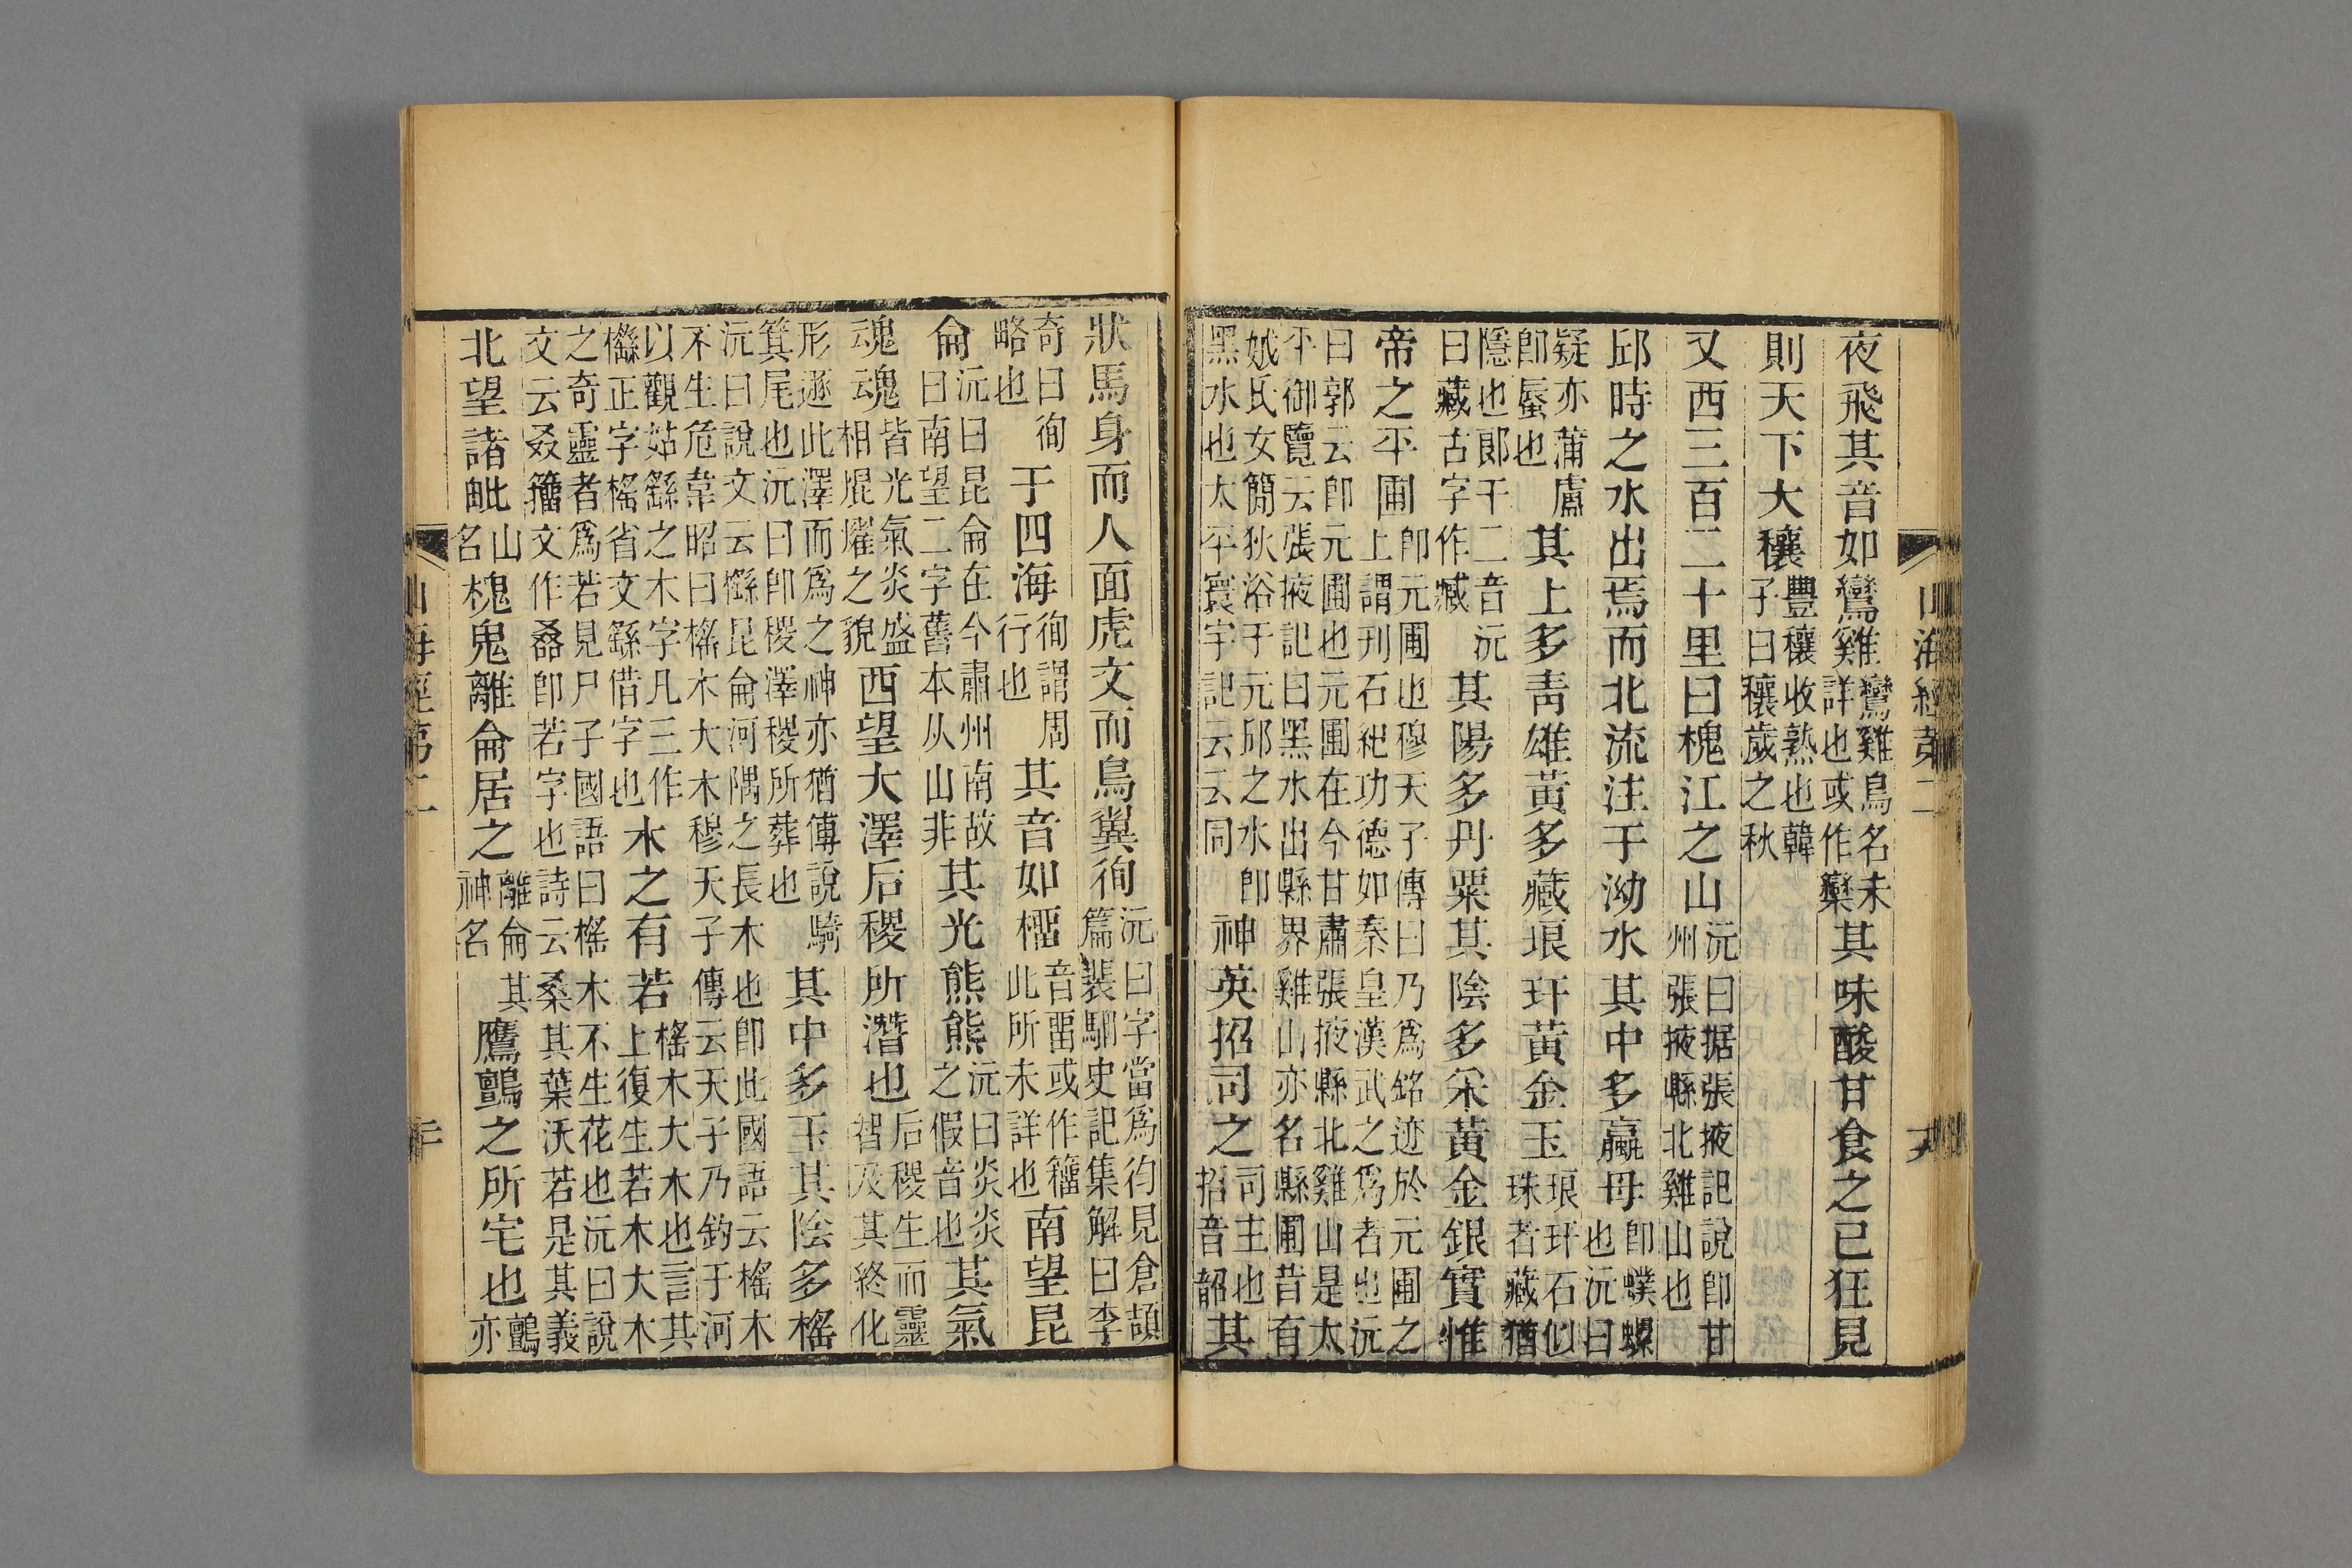 夜飛其音如鸞雞鸞雞鳥名未詳也或作欒其味酸甘食之已狂見
則天下大穰豐穰收熟也韓子曰穰歲之秋
又西三百二十里曰槐江之山沅曰据張掖記說卽甘州張掖縣北雞山也
邱時之水出焉而北流注于泑水其中多蠃母卽蟔螺也沅曰
疑亦蒲盧卽蜃也其上多靑雄黃多藏琅玕黃金玉琅玕石似珠者藏猶
隱也郞干二音沅曰藏古字作臧其陽多丹粟其陰多采黃金銀實惟
帝之平圃卽元圃也穆天子傳曰乃爲銘迹於元圃之上謂刊石紀功德如秦皇漢武之爲者也沅
曰郭云卽元圃也元圃在今甘肅張掖縣北雞山是太平御覽云張掖記曰黑水出縣界雞山亦名縣圃昔有
娀氏女簡狄浴于元邱之水卽黑水也太平寰宇記云云同神英招司之司主也招音韶其
山海經第二
狀馬身而人面虎文而鳥翼徇沅曰字當爲㣙見倉頡篇裴駰史記集解曰李
奇曰徇略也于四海徇謂周行也其音如榴音畱或作籀此所未詳也南望昆
侖沅曰昆侖在今肅州南故曰南望二字舊本从山非其光熊熊沅曰炎炎之假音也其氣
魂魂皆光氣炎盛相焜燿之貌西望大澤后稷所潛也后稷生而靈智及其終化
形遯此澤而爲之神亦猶傅說騎箕尾也沅曰卽稷澤稷所葬也其中多玉其陰多榣
沅曰說文云櫾昆侖河隅之長木也卽此國語云榣木不生危韋昭曰榣木大木穆天子傳云天子乃釣于河
以觀姑繇之木字凡三作櫾正字榣省文繇借字也木之有若榣木大木也言其上復生若木大木
之奇靈者爲若見尸子國語曰榣木不生花也沅曰說文云叒籀文作𠭥卽若字也詩云桑其葉沃若是其義
北望諸毗山名槐鬼離侖居之離侖其神名鷹鸇之所宅也鸇亦
山海經第二 二十